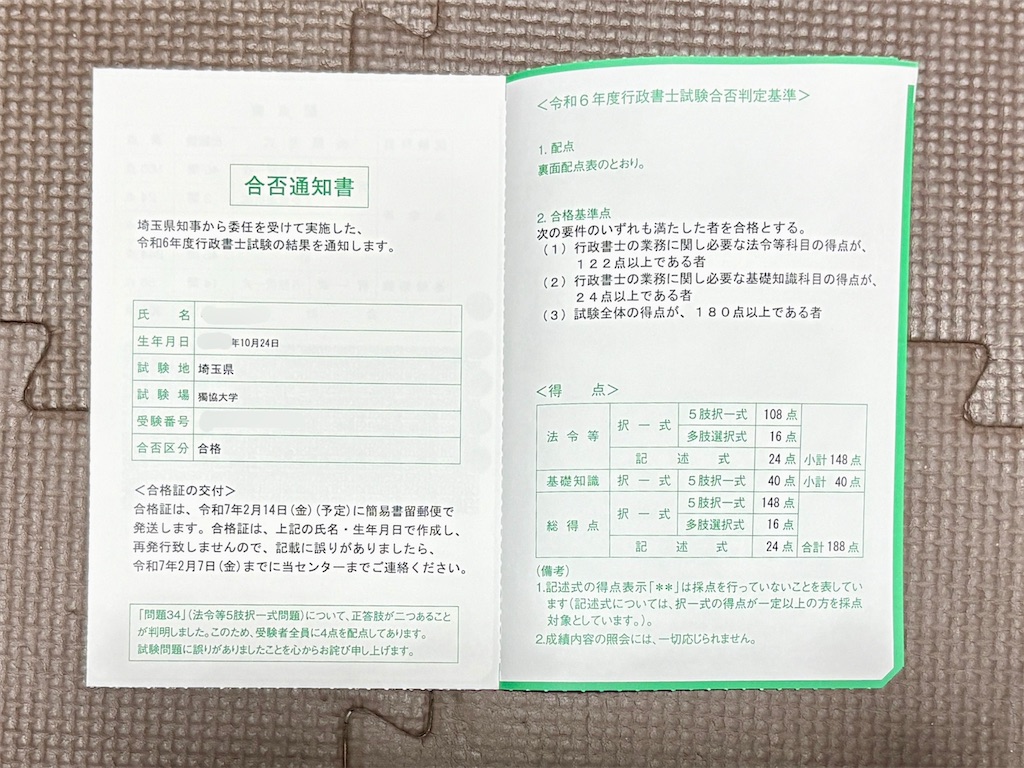 合否通知書
埼玉県知事から委任を受けて実施した、
令和6年度行政書士試験の結果を通知します。
氏　名
生年月日 年10月24日
試験地 埼玉県
試験場 獨協大学
受験番号
合否区分 合格
＜合格証の交付＞
合格証は、令和7年2月14日(金)(予定)に簡易書留郵便で
発送します。合格証は、上記の氏名・生年月日で作成し、
再発行致しませんので、記載に誤りがありましたら、
令和7年2月7日(金)までに当センターまでご連絡ください。
「問題34」(法令等5肢択一式問題)について、正答肢が二つあること
が判明しました。このため、受験者全員に4点を配点してあります。
試験問題に誤りがありましたことを心からお詫び申し上げます。
＜令和６年度行政書士試験合否判定基準＞
1. 配点
裏面配点表のとおり。
2. 合格基準点
次の要件のいずれも満たした者を合格とする。
（１）行政書士の業務に関し必要な法令等科目の得点が、
１２２点以上である者
（２）行政書士の業務に関し必要な基礎知識科目の得点が、
２４点以上である者
（３）試験全体の得点が、１８０点以上である者
＜得　点＞
法令等 択一式 ５肢択一式 108 点
多肢選択式 16 点
記述式 24 点 小計 148 点
基礎知識 択一式 ５肢択一式 40 点 小計 40 点
総得点 択一式 ５肢択一式 148 点
多肢選択式 16 点
記述式 24 点 合計 188 点
(備考)
1.記述式の得点表示「＊＊」は採点を行っていないことを表してい
ます(記述式については、択一式の得点が一定以上の方を採点
対象としています。)。
2.成績内容の照会には、一切応じられません。